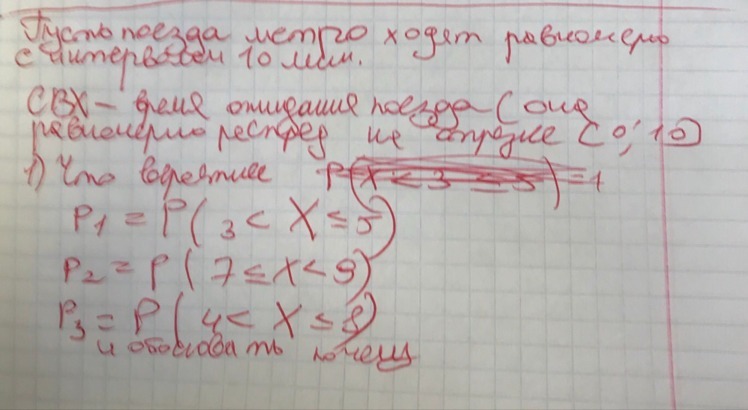 Пусть поезда метро ходят равномерно
с интервалом 10 мин.
СВХ – время ожидания поезда (она
равномерно распред на отрезке (0; 10)
1) Что вероятнее
P1 = P( 3 < X ≤ 5)
P2 = P ( 7 ≤ X < 9)
P3 = P ( 4 < X ≤ 8)
и обосновать